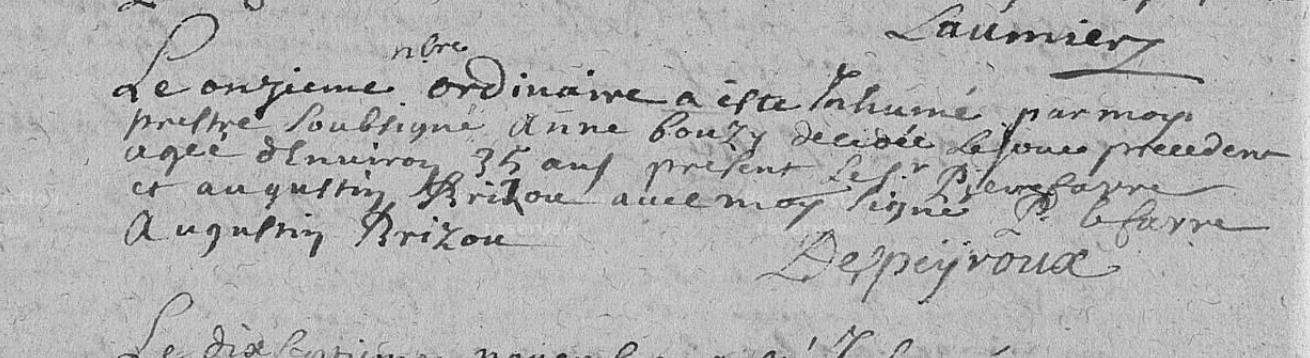 Laumier
nbre
Le onzieme ordinaire a este Inhumé par moy
prestre soubsigné anne bouzy decedée le jour precedent
agée d'Environ 35 ans présent le sr Pierre favre
et augustin Krizou avec moy signé P. lefavre
Augustin Krizou
Despeÿroux
Le dix septieme novembre a été